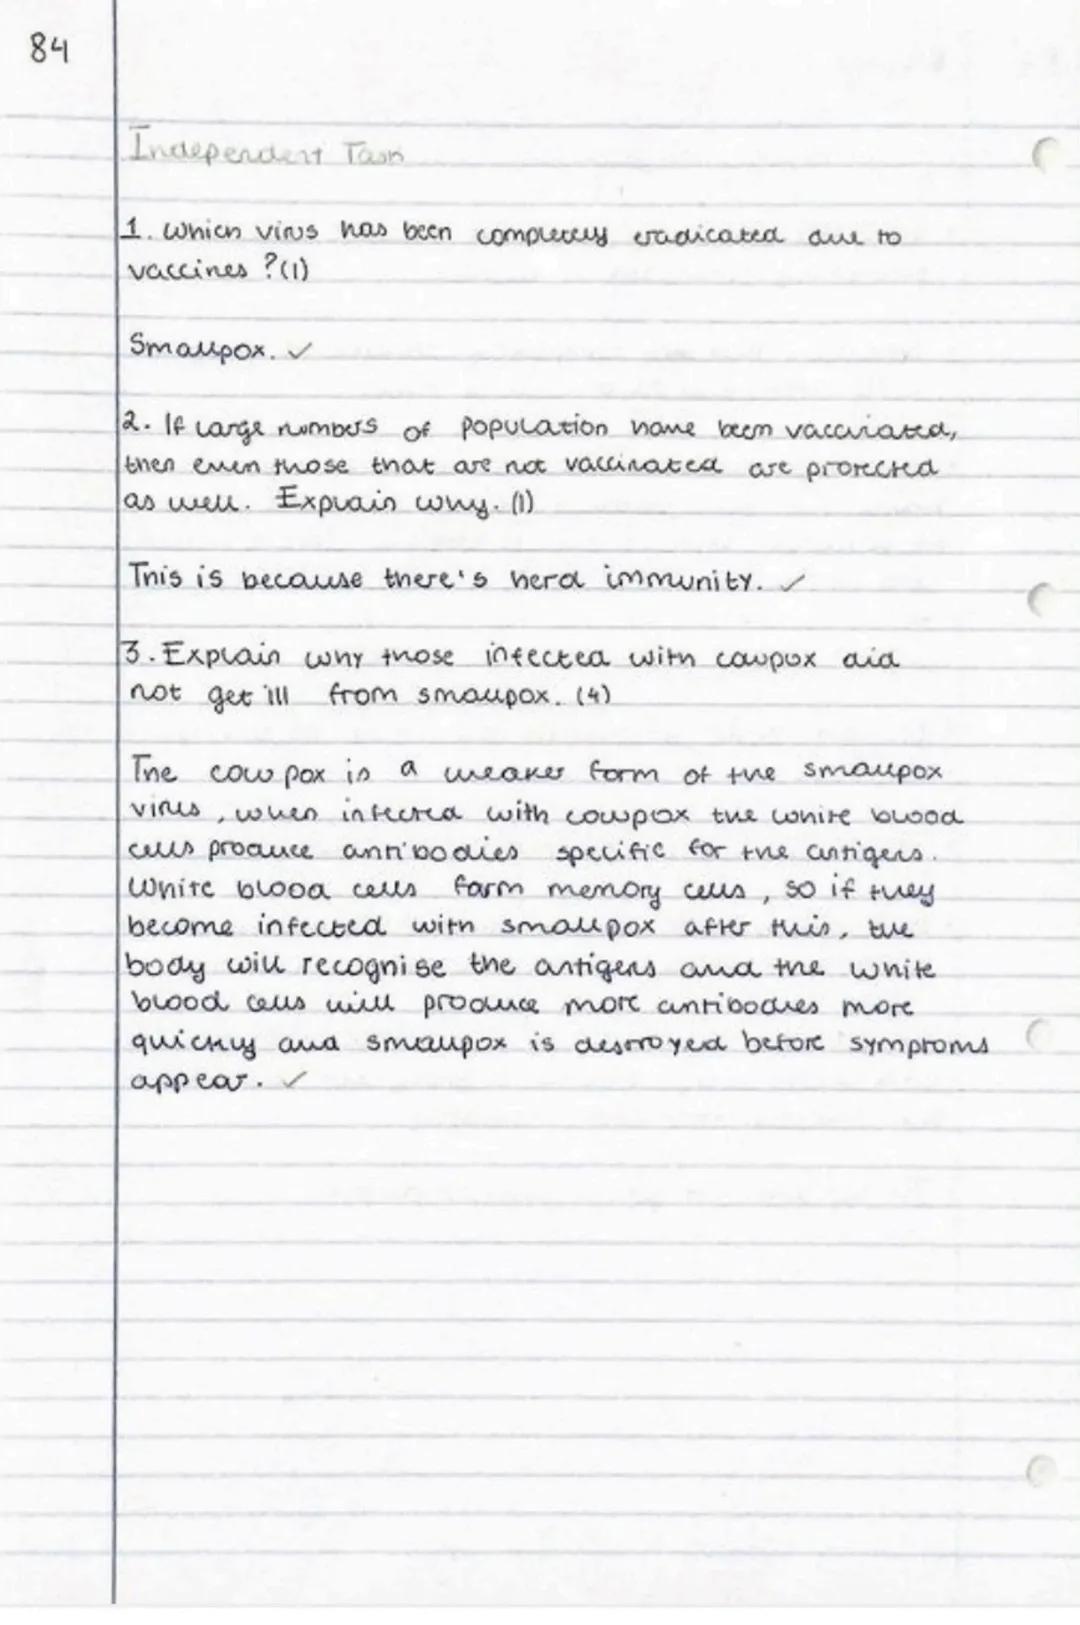 84
Independent Task
1. Which virus has been completely eradicated due to
vaccines ? (1)
Smallpox. ✓
2. If large numbers of population have been vaccinated,
then even those that are not vaccinated are protected
as well. Explain why. (1)
This is because there's herd immunity. ✓
3. Explain why those infected with cowpox did
not get ill from smallpox. (4)
The cow pox is a weaker form of the smallpox
virus, when infected with cowpox the white blood
cells produce antibodies specific for the antigens.
White blood cells form memory cells, so if they
become infected with smallpox after this, the
body will recognise the antigens and the white
blood cells will produce more antibodies more
quickly and smallpox is destroyed before symptoms
appear. ✓